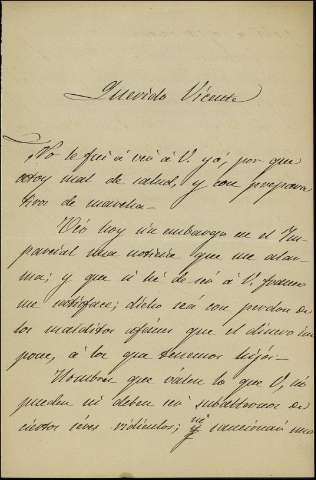 Querido Vicente
No le fui á ver á V. ya, por que
estoy mal de salud, y con prepara
tivos de marcha.
Veo hoy sin embargo en el Im-
parcial una noticia que me alar-
ma; y que si hé de ser á V. franco
me satisface; dicho sea con perdon de
los malditos afanes que el dinero im
pone, á los que tenemos hijos—
Hombres que valen lo que V. no
pueden ni deben ser subalternos de
ciertos séres ridículos; ni sancionar una